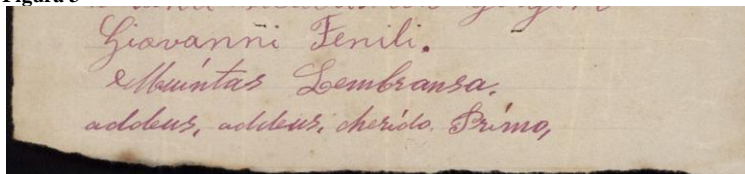 Giovanni Fenili.
e Muíntas Lembransa.
addeus, addeus, cherído. Prímo,